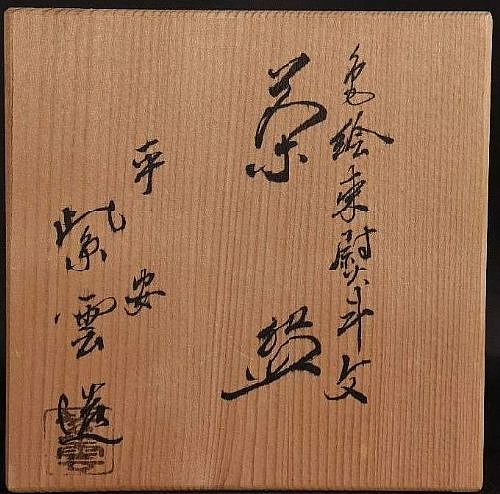 色絵束熨斗文
茶盌
平安
紫雲造